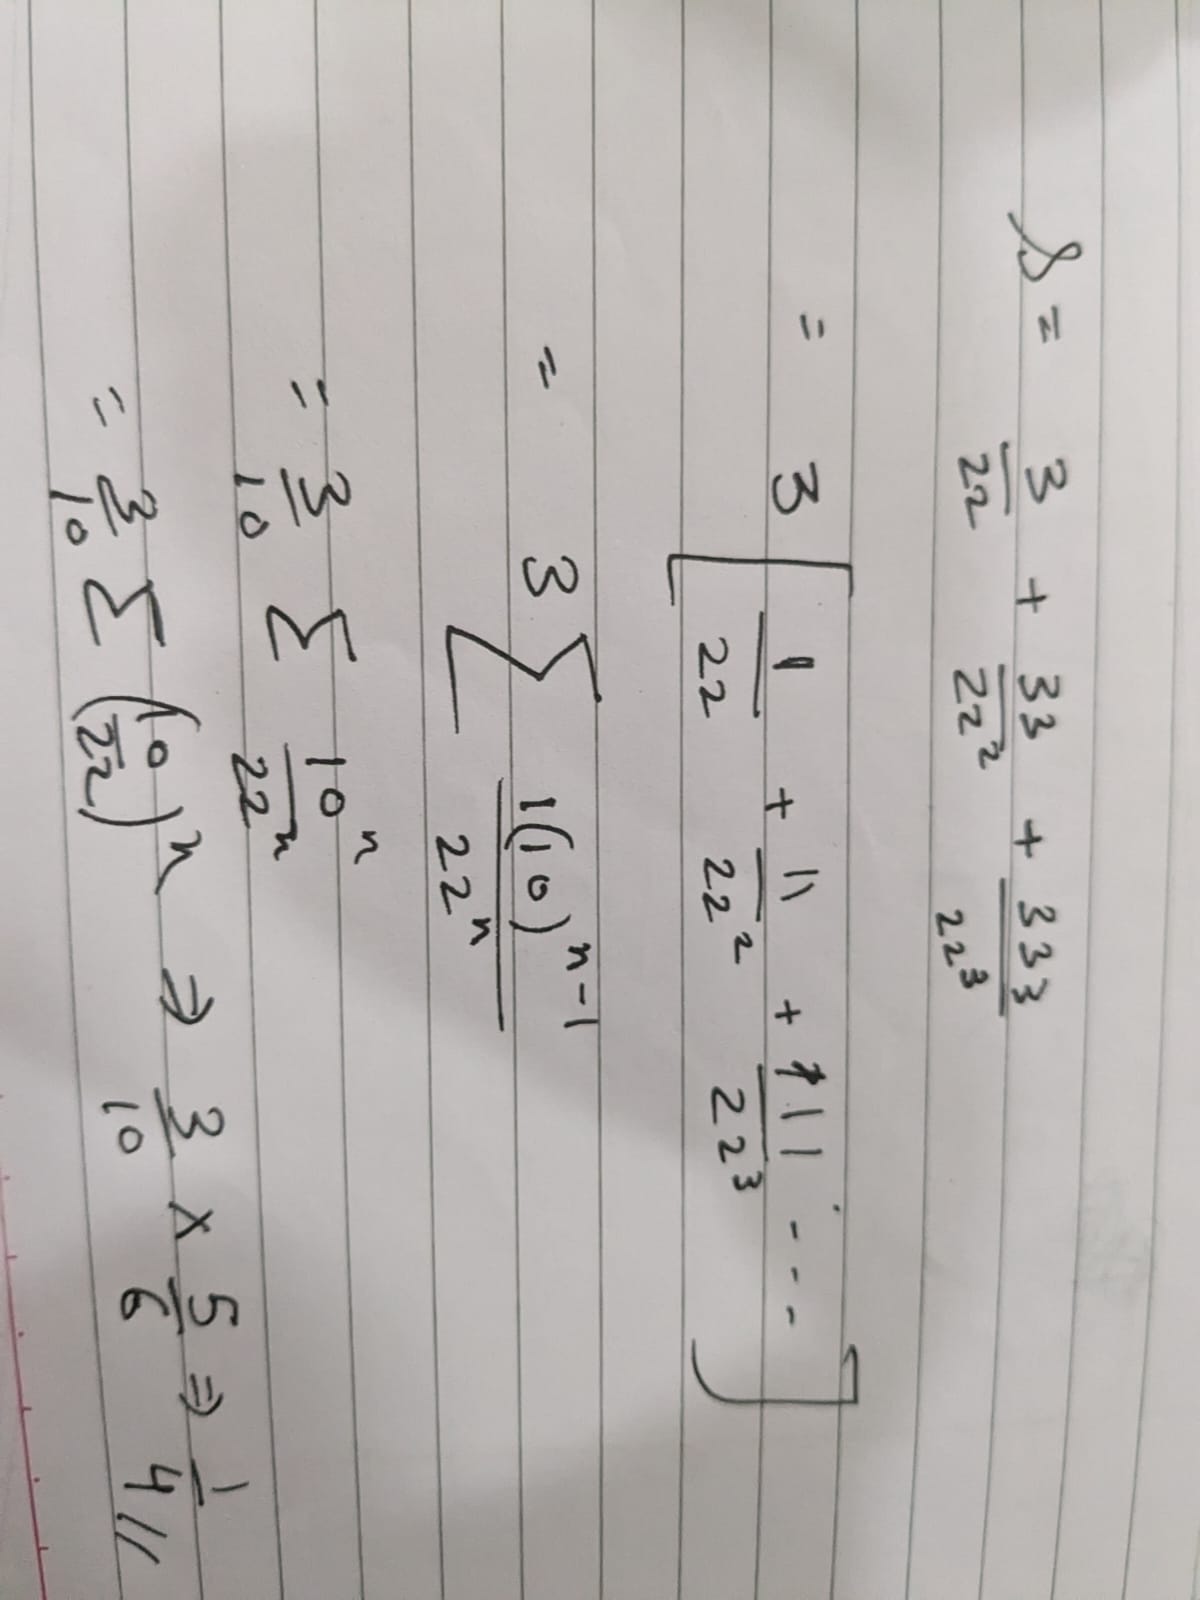 S = 3/22 + 33/22² + 333/22³
= 3 [ 1/22 + 11/22² + 111/22³ ---- ]
= 3 Σ 1(10)ⁿ⁻¹/22ⁿ
= 3/10 Σ 10ⁿ/22ⁿ
= 3/10 Σ (10/22)ⁿ ⇒ 3/10 × 5/6 ⇒ 1/4 //